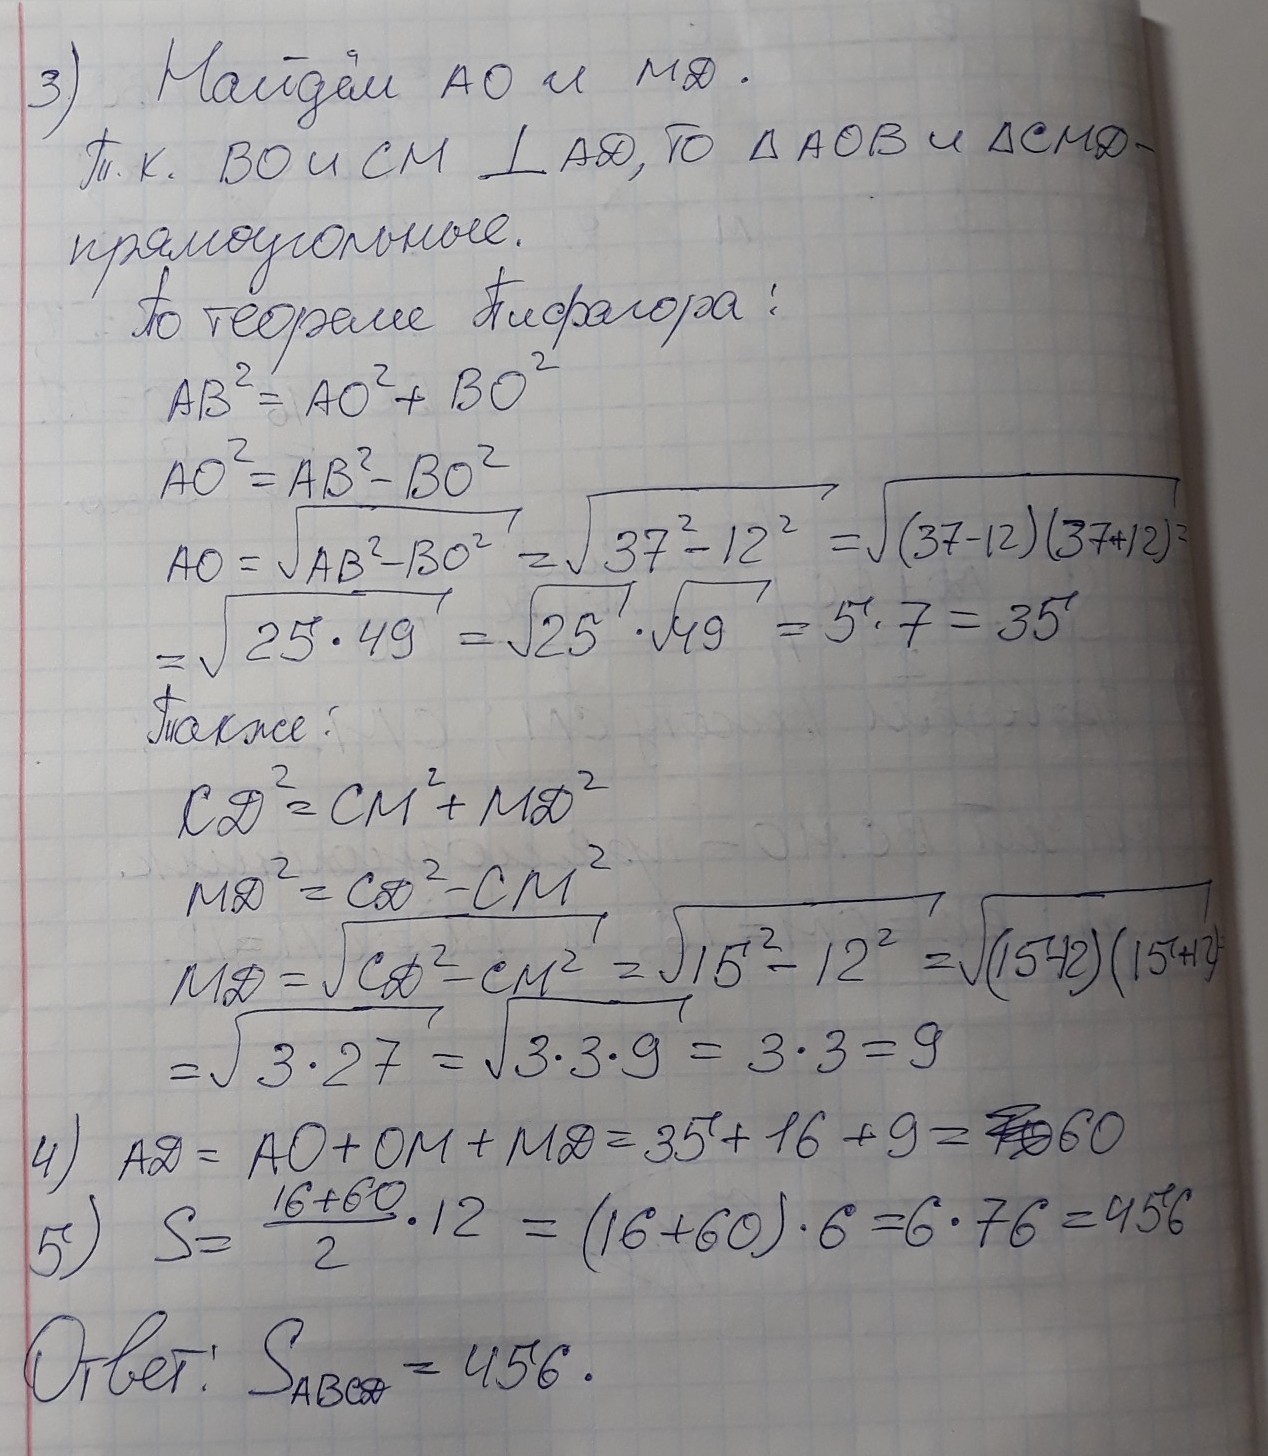 3) Найдём AO и MD.
Т.к. BO и CM ⊥ AD, то ΔAOB и ΔCMD-
прямоугольные.
По теореме Пифагора:
AB² = AO² + BO²
AO² = AB² - BO²
AO = √(AB² - BO²) = √(37² - 12²) = √((37-12)(37+12)) =
= √(25·49) = √25 · √49 = 5·7 = 35
Также:
CD² = CM² + MD²
MD² = CD² - CM²
MD = √(CD² - CM²) = √(15² - 12²) = √((15-12)(15+12)) =
= √(3·27) = √(3·3·9) = 3·3 = 9
4) AD = AO + OM + MD = 35 + 16 + 9 = 60
5) S = (16+60)/2 · 12 = (16+60)·6 = 6·76 = 456
Ответ: S_ABCD = 456.